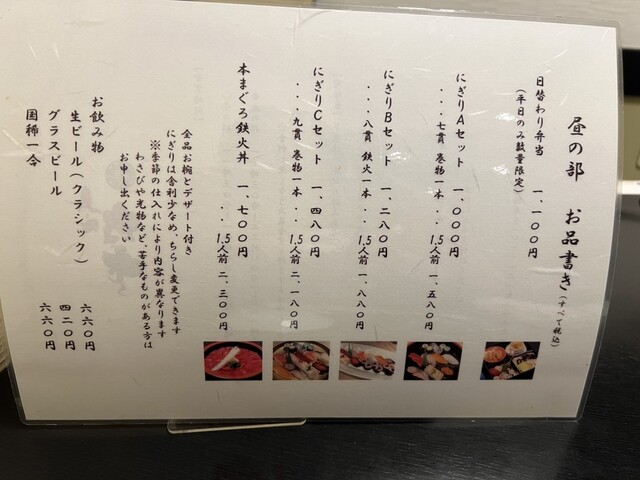 昼の部 お品書き(すべて税込)
日替わり弁当 一、一〇〇円
(平日のみ数量限定)
にぎりAセット 一、〇〇〇円
・・・七貫 巻物一本・・1.5人前 一、五八〇円
にぎりBセット 一、二八〇円
・・・八貫 鉄火一本・・1.5人前 一、八八〇円
にぎりCセット 一、四八〇円
・・・九貫 巻物一本・・1.5人前 二、一八〇円
本まぐろ鉄火丼 一、七〇〇円
・・1.5人前 二、三〇〇円
全品お椀とデザート付き
にぎりは舎利少なめ、ちらし変更できます
※季節の仕入れにより内容が異なります
わさびや光物など、苦手なものがある方は
お申し出ください
お飲み物
生ビール(クラシック) 六六〇円
グラスビール 四二〇円
国稀一合 六六〇円